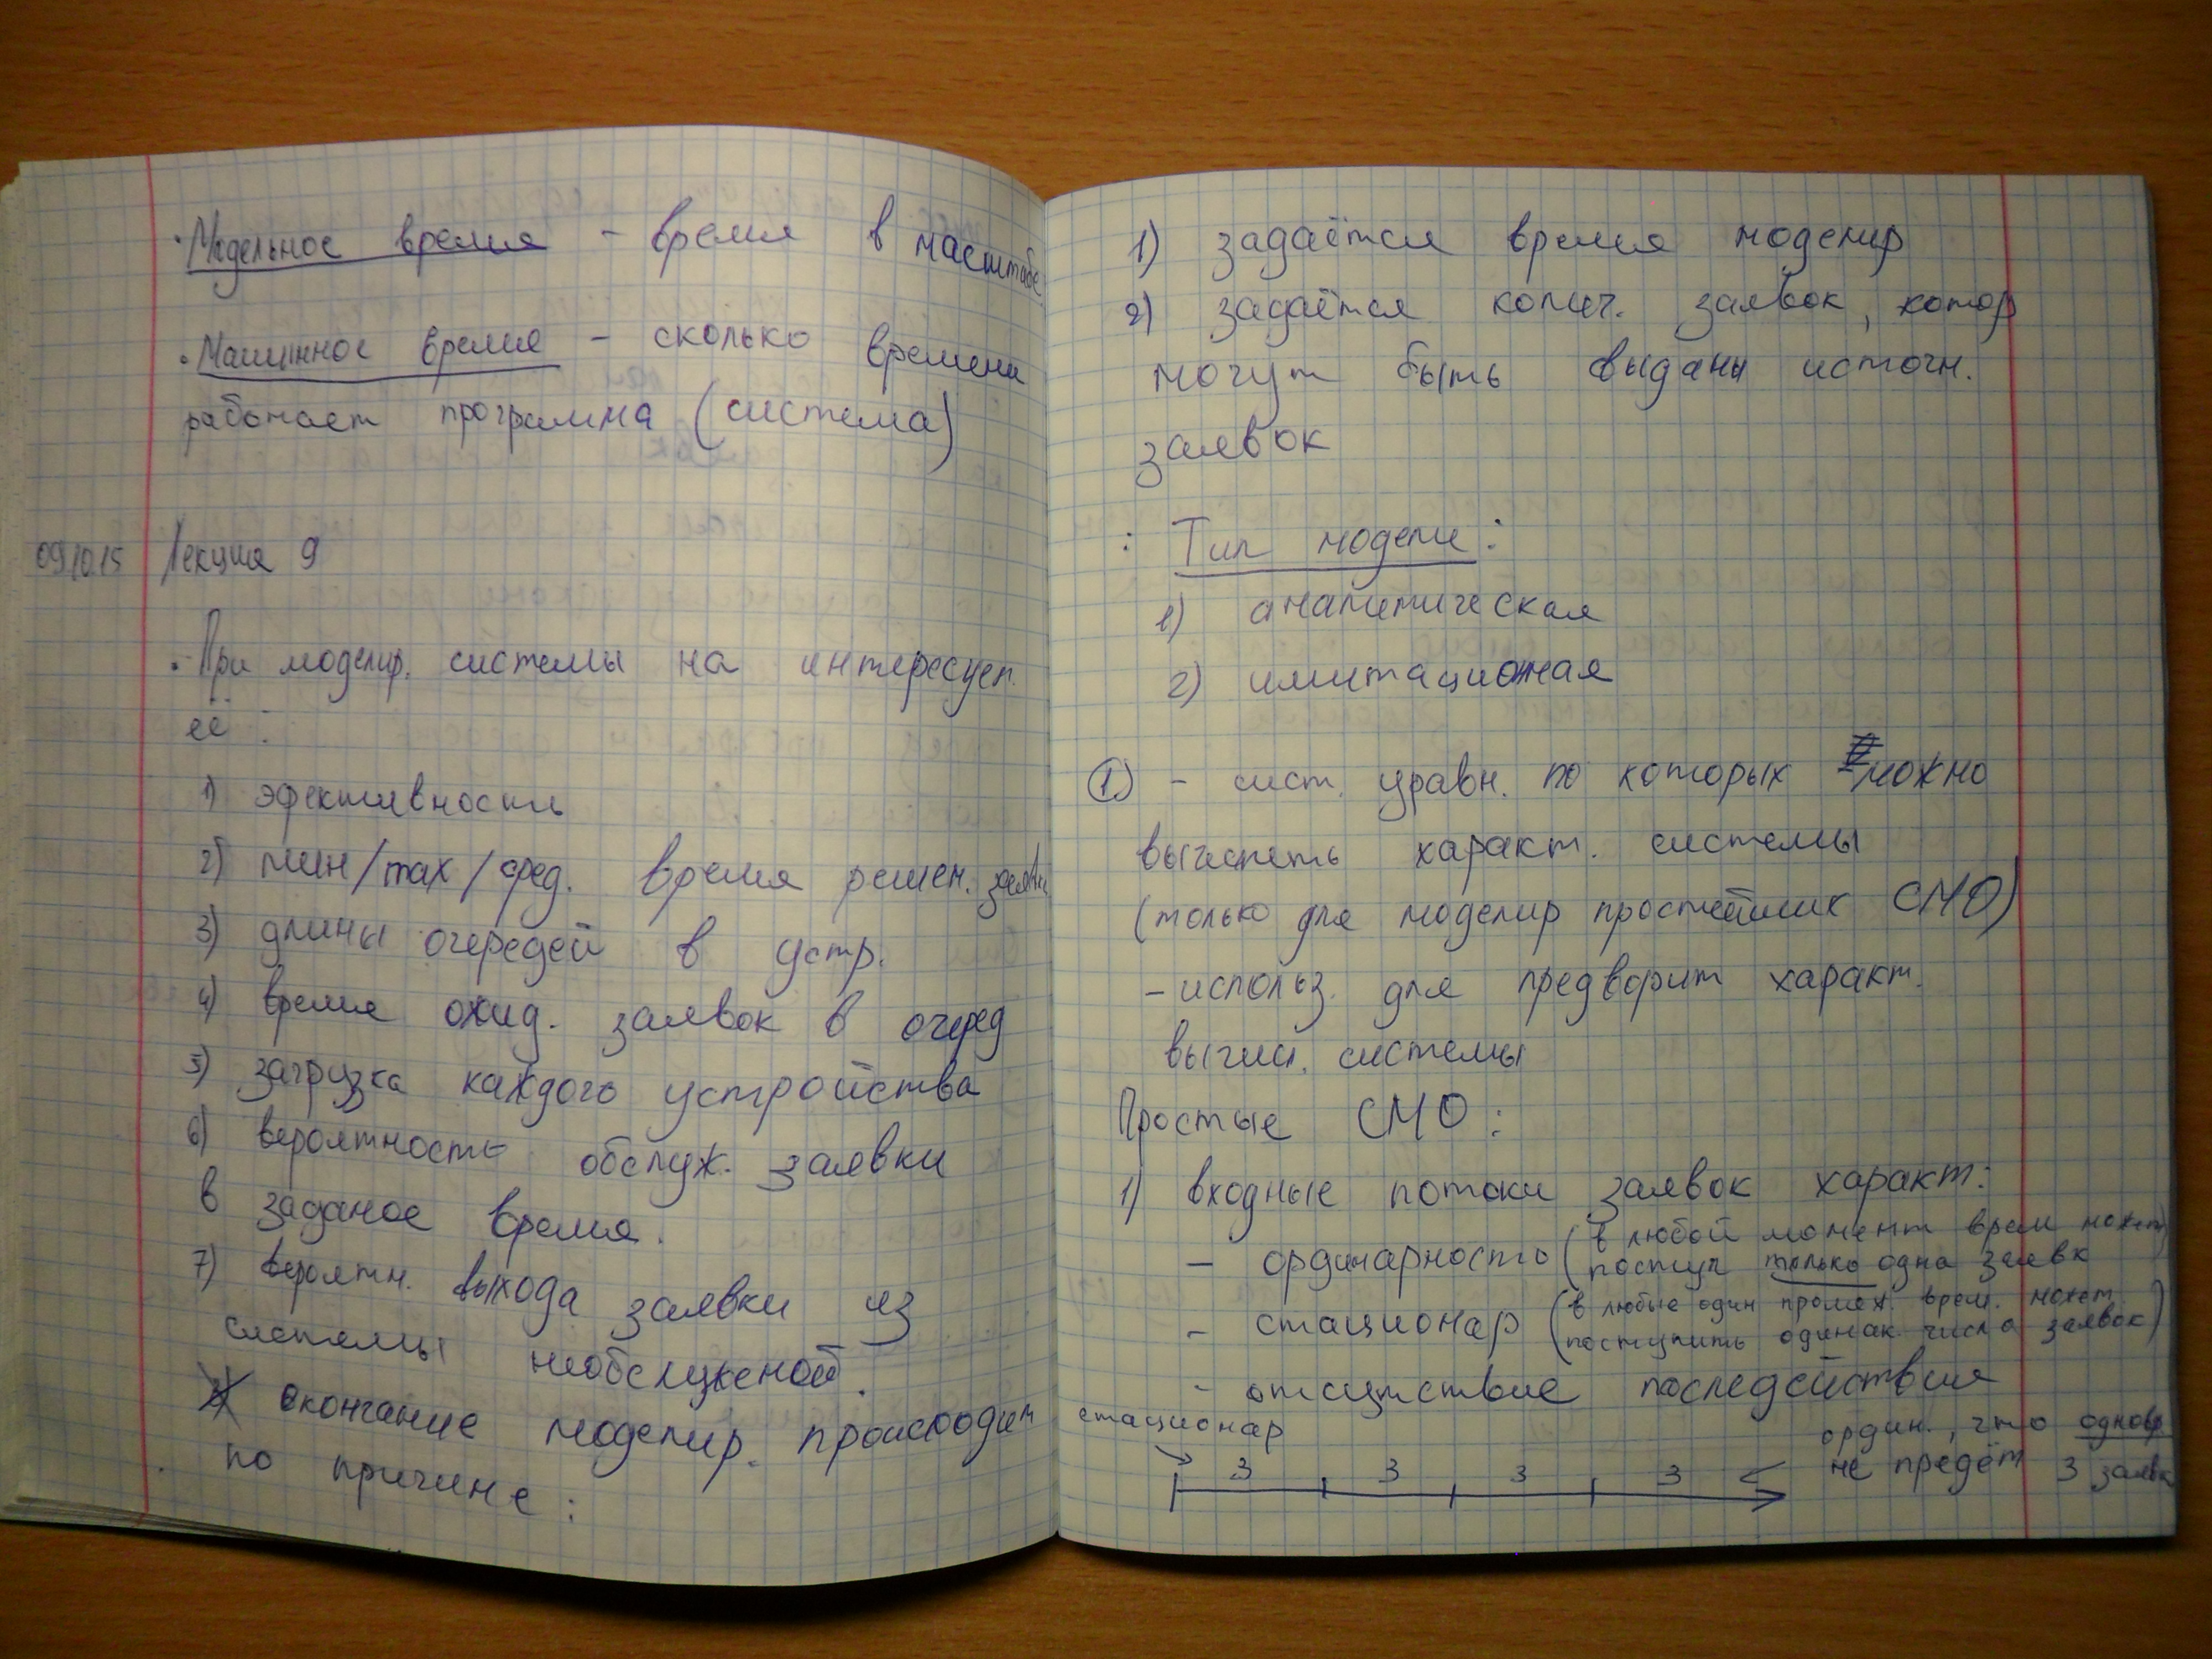 · Модельное время - время в масштабе
· Машинное время - сколько времени
работает программа (система)
09.10.15 Лекция 9
· При моделир. системы на интересует
её :
1) эфективность
2) мин/max/сред. время решен. заявки
3) длины очередей в устр.
4) время ожид. заявок в очеред
5) загрузка каждого устройства
6) вероятность обслуж. заявки
в заданое время.
7) вероятн. выхода заявки из
системы необслуженой.
окончание моделир. происходит
по причине :
1) задаётся время моделир
2) задаётся колич. заявок, котор
могут быть выданы источн.
заявок
: Тип модели :
1) аналитическая
2) имитационая
1) - сист. уравн. по которых можно
вычислеть характ. системы
(только для моделир простейших СМО)
- использ. для предворит характ.
вычисл. системы
Простые СМО :
1) входные потоки заявок характ:
- ординарность (в любой момент врем может)
поступ только одна заявк
- стационар (в любые один промеж. врем. может
поступить одинак. числа заявок)
- отсутствие последействия
стационар
ордин., что одновр
не придёт 3 заявк
3 3 3 3